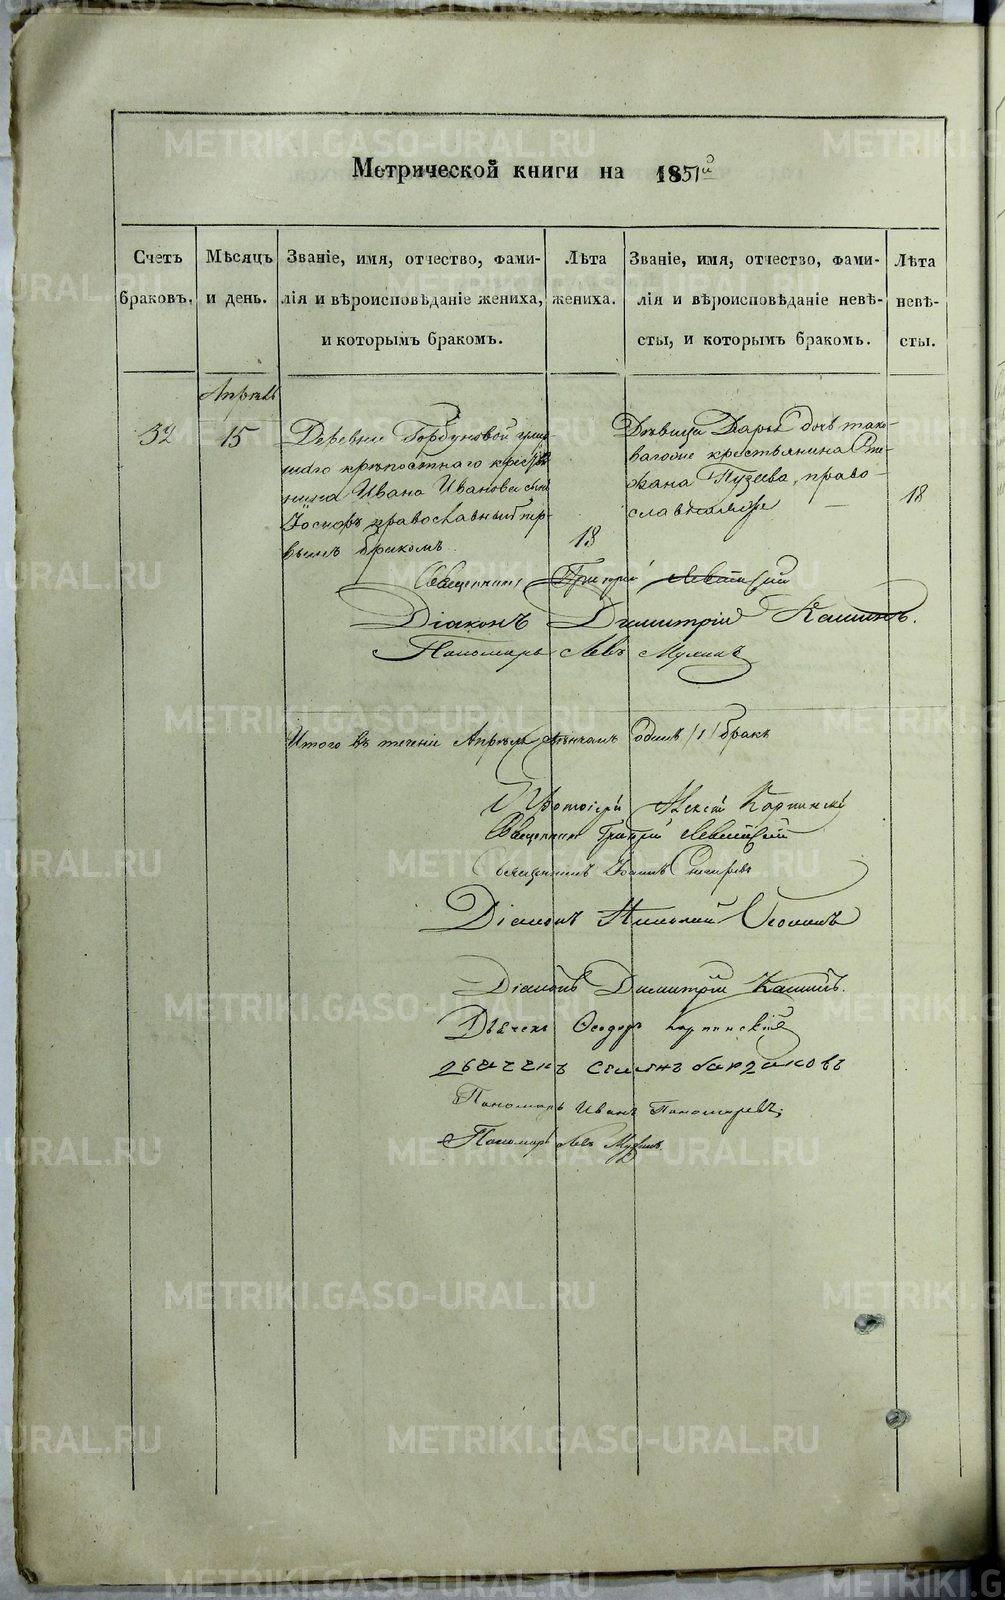 Метрической книги на 1851й
Счетъ
браковъ.
Мѣсяцъ
и день.
Званіе, имя, отчество, фами-
лія и вѣроисповѣданіе жениха,
и которымъ бракомъ.
Лѣта
жениха.
Званіе, имя, отчество, фами-
лія и вѣроисповѣданіе невѣ-
сты, и которымъ бракомъ.
Лѣта
невѣ-
сты.
Апрѣль
32
15
Деревни Горбуновой
крѣпостнаго кресть
нина Ивана Иванова сынъ
православный пер-
вымъ бракомъ
18
Дѣвица Дарья дочь тако-
ваго же крестьянина Сте-
фана Пузеева, право-
славной вѣры
18
Священникъ Григорій Левитскій
Діаконъ Димитрій Кашинъ.
Пономарь Левъ
Итого въ теченіе Апрѣля вѣнчанъ одинъ /1/ бракъ
Протоіерей Алексій Карпинскій
Священникъ Григорій Левитскій
Священникъ Іоаннъ
Діаконъ Николай
Діаконъ Димитрій Кашинъ.
Дьячекъ Ѳеодоръ Карпинскій
дьячекъ Семенъ
Пономарь Иванъ Пономаревъ;
Пономарь Левъ
METRIKI.GASO-URAL.RU